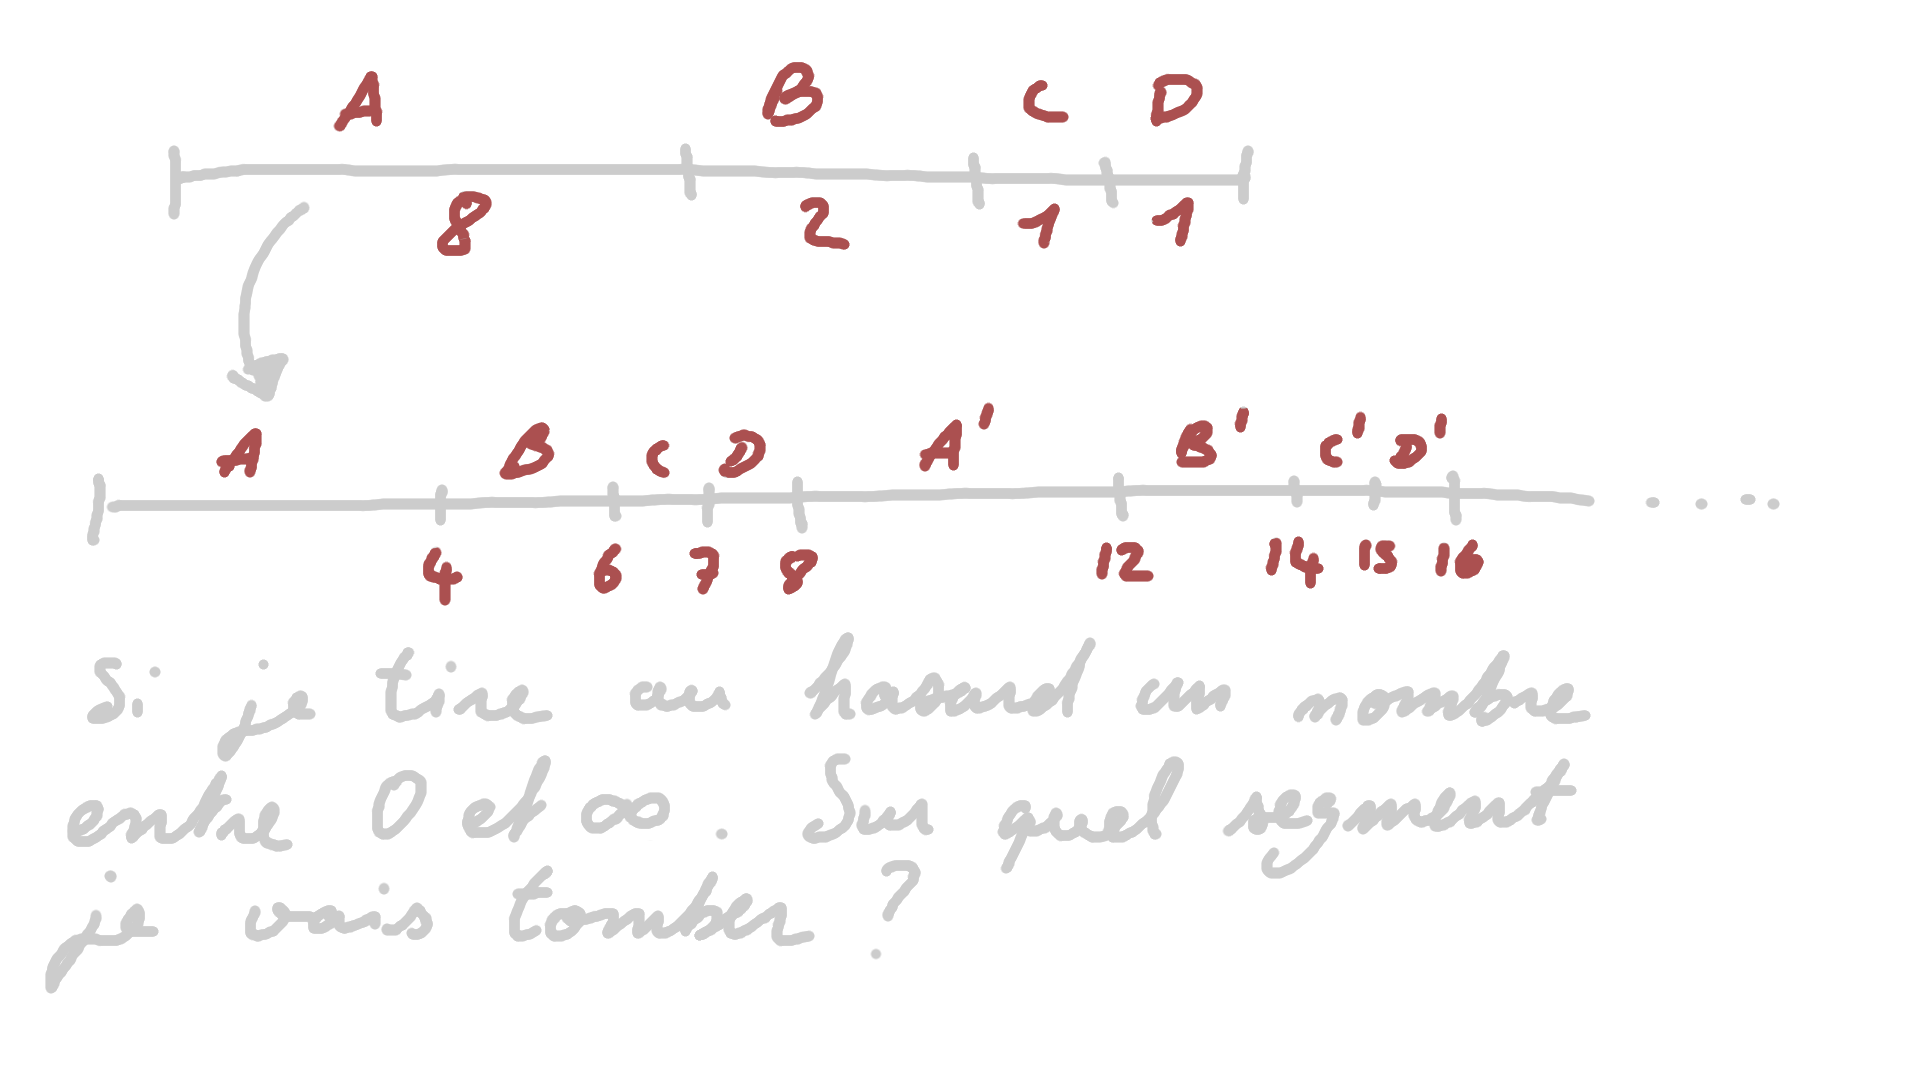 A B C D
8 2 1 1
A B C D A' B' C' D'
4 6 7 8 12 14 15 16
Si je tire au hasard un nombre
entre 0 et ∞. Sur quel segment
je vais tomber ?